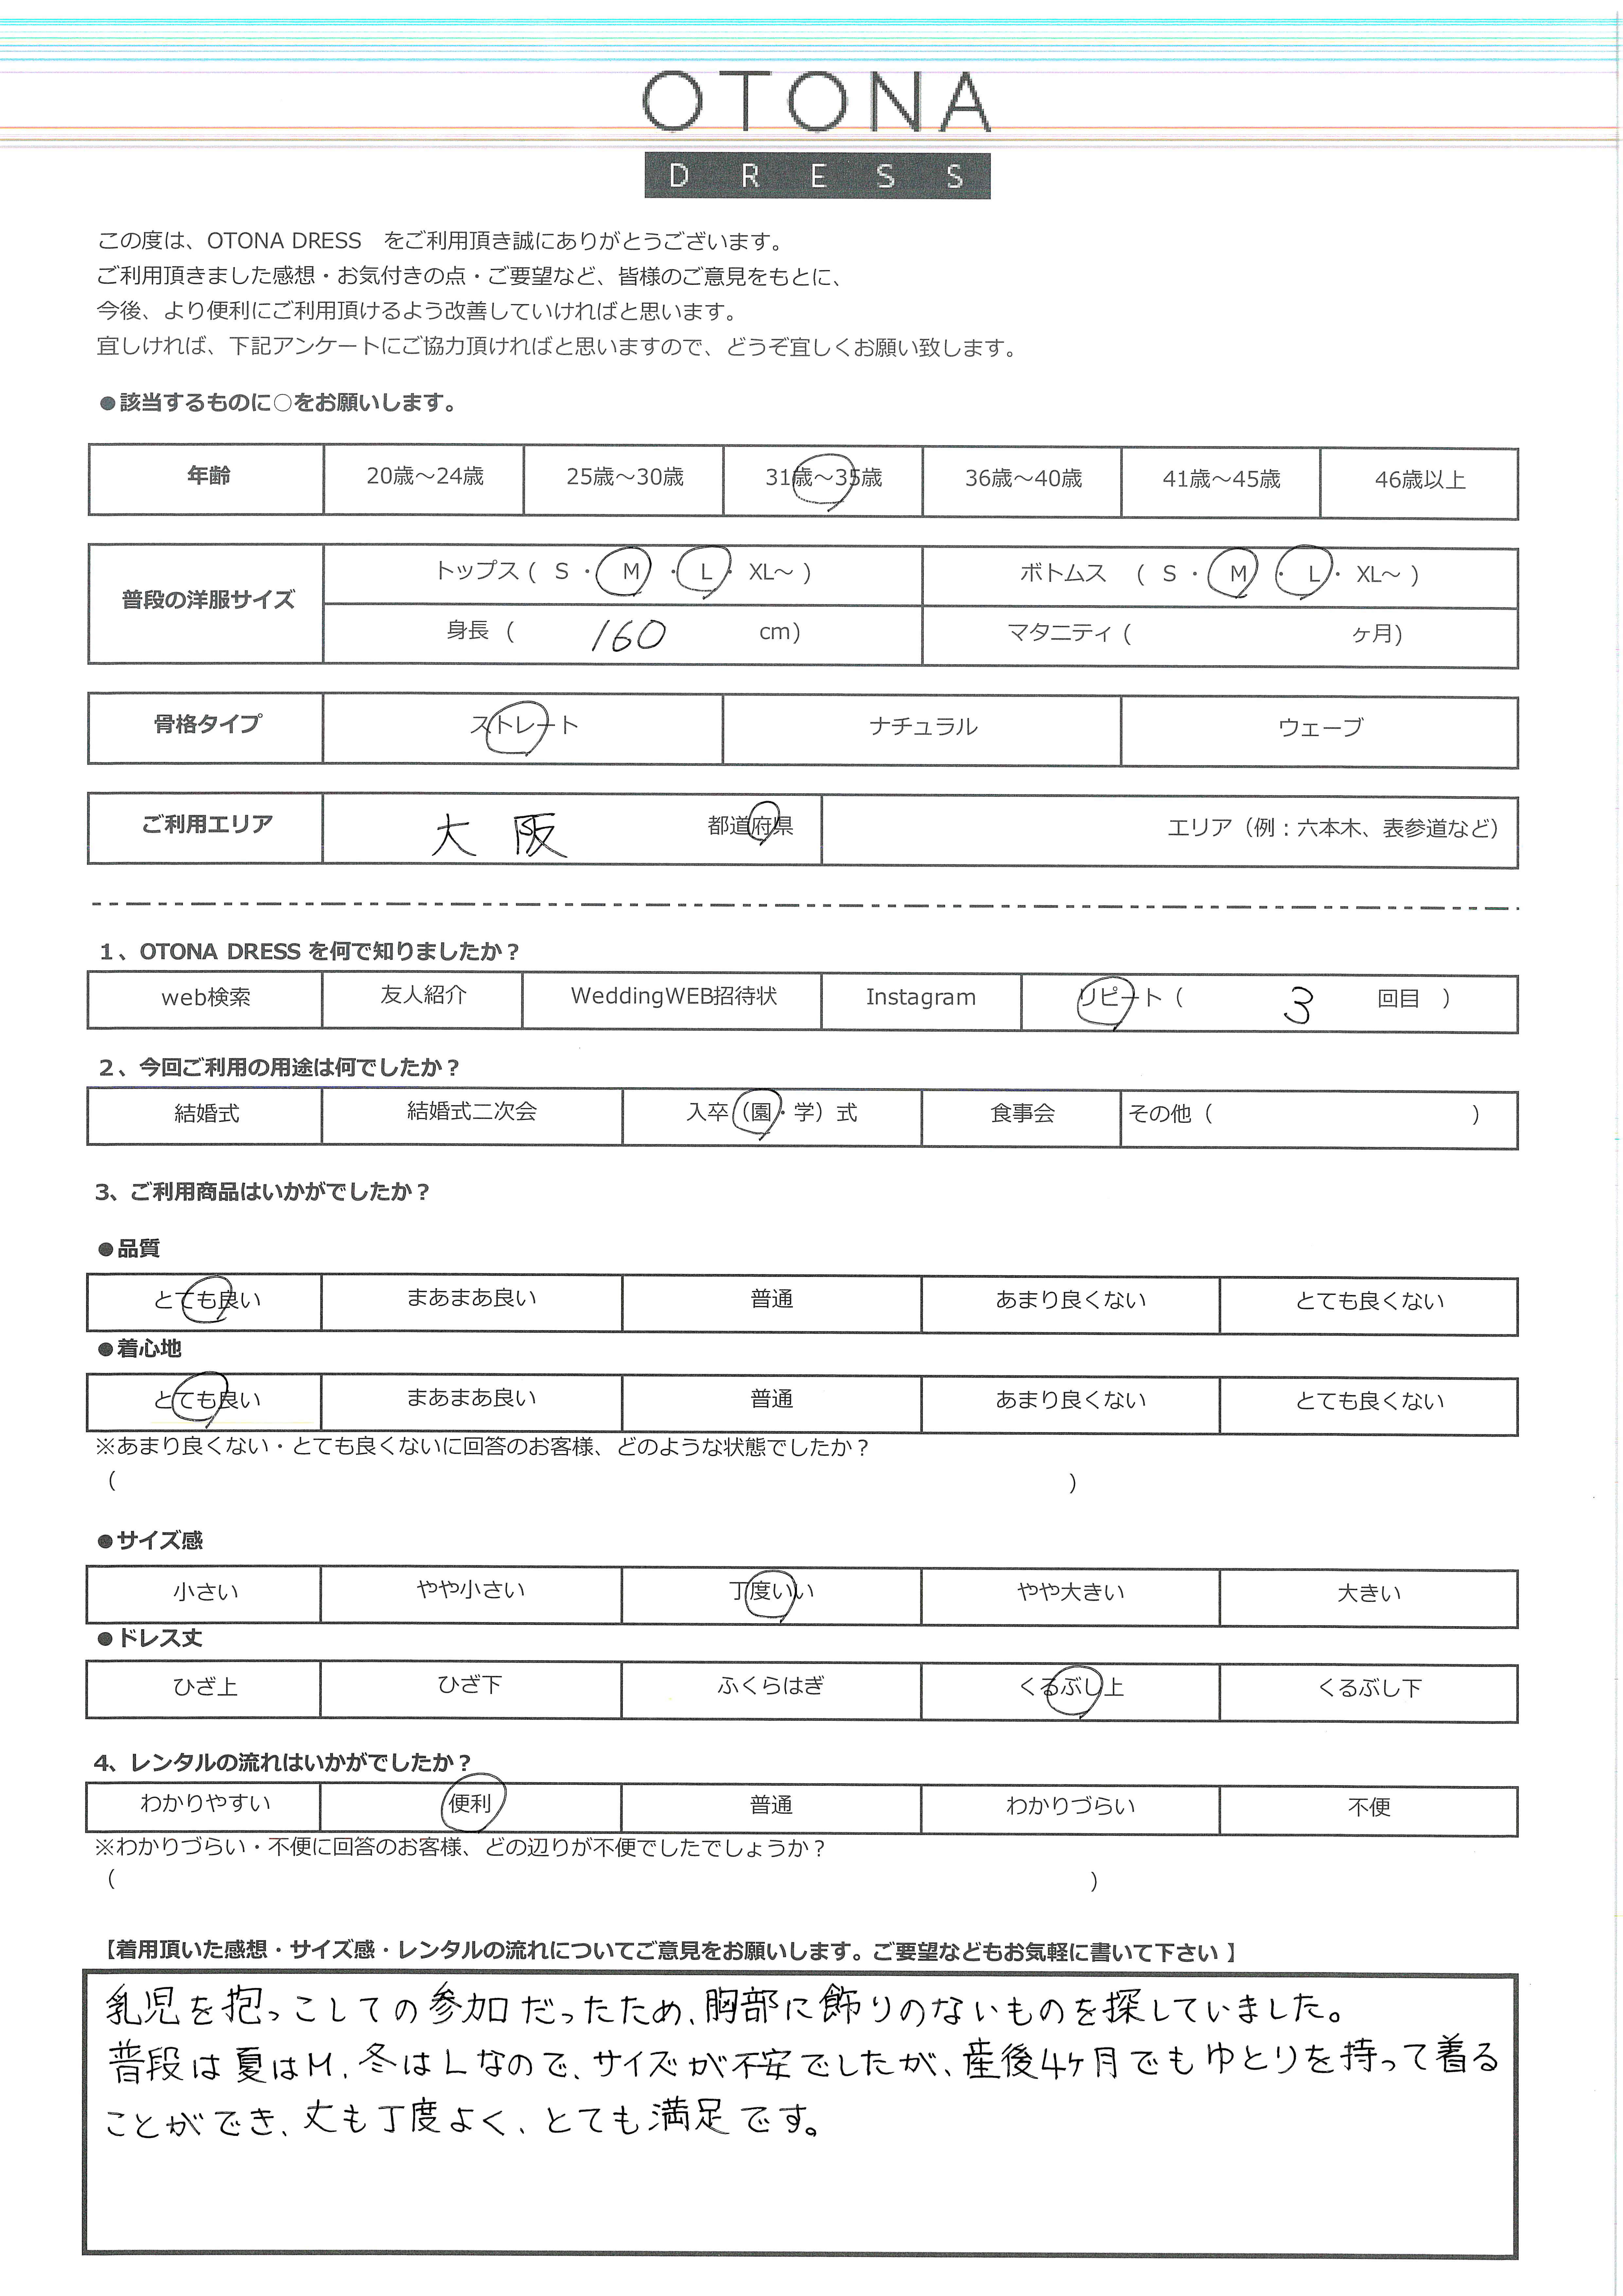 OTONA
DRESS
この度は、OTONA DRESS をご利用頂き誠にありがとうございます。
ご利用頂きました感想・お気付きの点・ご要望など、皆様のご意見をもとに、
今後、より便利にご利用頂けるよう改善していければと思います。
宜しければ、下記アンケートにご協力頂ければと思いますので、どうぞ宜しくお願い致します。
●該当するものに○をお願いします。
年齢 20歳～24歳 25歳～30歳 31歳～35歳 36歳～40歳 41歳～45歳 46歳以上
普段の洋服サイズ トップス ( S ・ M ・ L ・ XL～ ) ボトムス ( S ・ M ・ L ・ XL～ )
身長 ( 160 cm) マタニティ ( ヶ月)
骨格タイプ ストレート ナチュラル ウェーブ
ご利用エリア 大阪 都道府県 エリア（例：六本木、表参道など）
1、OTONA DRESS を何で知りましたか？
web検索 友人紹介 WeddingWEB招待状 Instagram リピート ( 3 回目 )
2、今回ご利用の用途は何でしたか？
結婚式 結婚式二次会 入卒（園・学）式 食事会 その他 ( )
3、ご利用商品はいかがでしたか？
●品質
とても良い まあまあ良い 普通 あまり良くない とても良くない
●着心地
とても良い まあまあ良い 普通 あまり良くない とても良くない
※あまり良くない・とても良くないに回答のお客様、どのような状態でしたか？
( )
●サイズ感
小さい やや小さい 丁度いい やや大きい 大きい
●ドレス丈
ひざ上 ひざ下 ふくらはぎ くるぶし上 くるぶし下
4、レンタルの流れはいかがでしたか？
わかりやすい 便利 普通 わかりづらい 不便
※わかりづらい・不便に回答のお客様、どの辺りが不便でしたでしょうか？
( )
【着用頂いた感想・サイズ感・レンタルの流れについてご意見をお願いします。ご要望などもお気軽に書いて下さい 】
乳児を抱っこしての参加だったため、胸部に飾りのないものを探していました。
普段は夏はM、冬はLなので、サイズが不安でしたが、産後4ヶ月でもゆとりを持って着る
ことができ、丈も丁度よく、とても満足です。